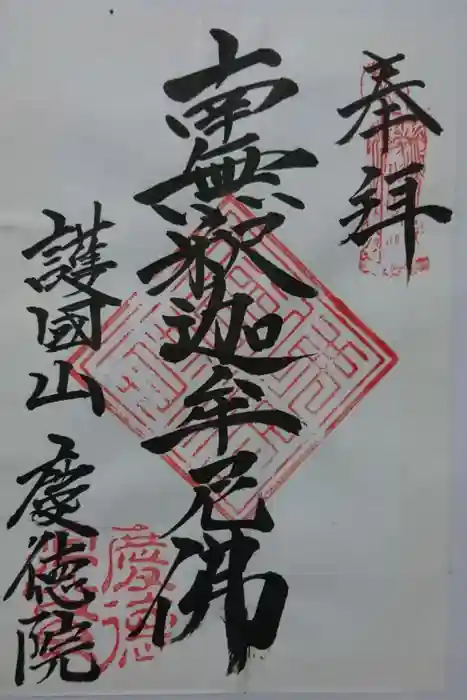 奉拜
南無釈迦牟尼佛
護國山 慶徳院
慶徳